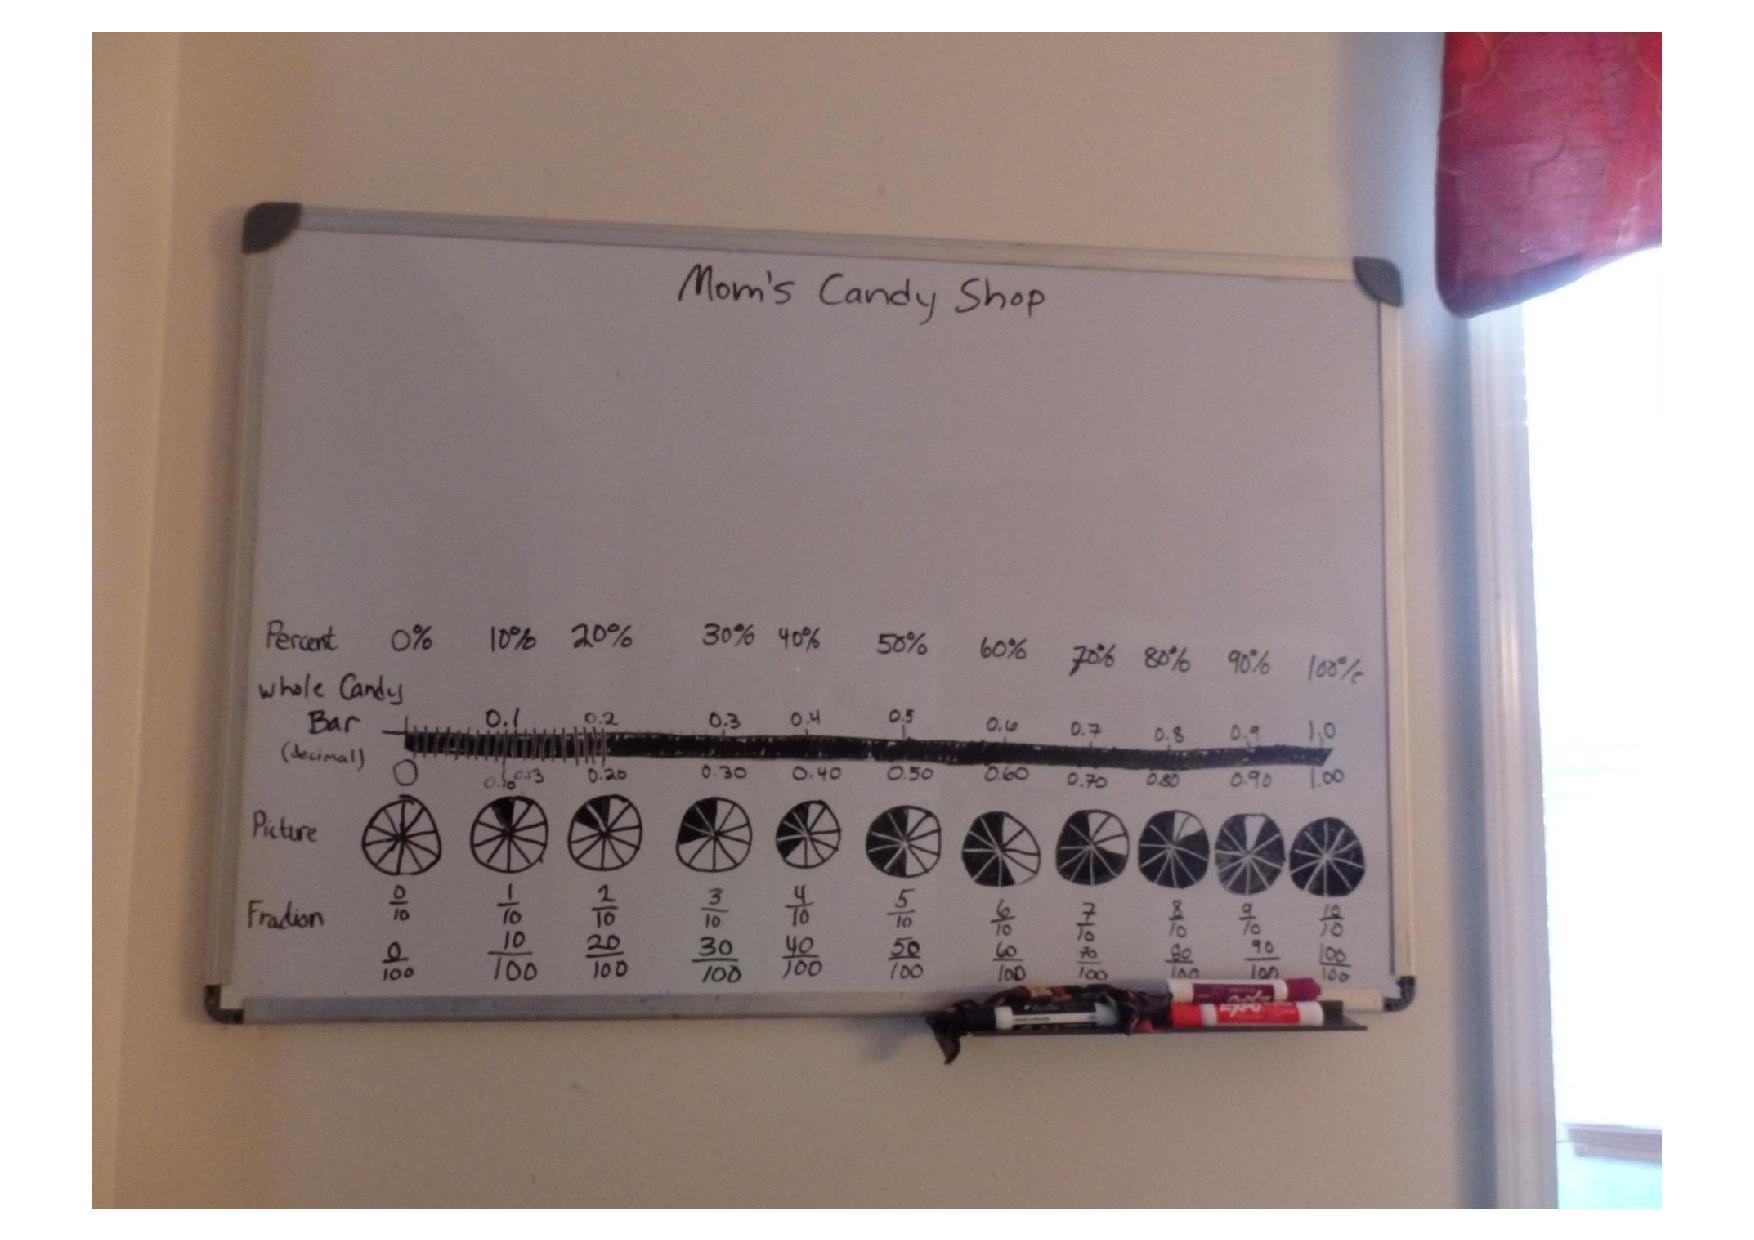 Mom's Candy Shop
Percent 0% 10% 20% 30% 40% 50% 60% 70% 80% 90% 100%
Whole Candy
Bar 0.1 0.2 0.3 0.4 0.5 0.6 0.7 0.8 0.9 1.0
(decimal) 0 0.10 0.13 0.20 0.30 0.40 0.50 0.60 0.70 0.80 0.90 1.00
Picture
Fraction 0/10 1/10 2/10 3/10 4/10 5/10 6/10 7/10 8/10 9/10 10/10
0/100 10/100 20/100 30/100 40/100 50/100 60/100 70/100 80/100 90/100 100/100
EXPO